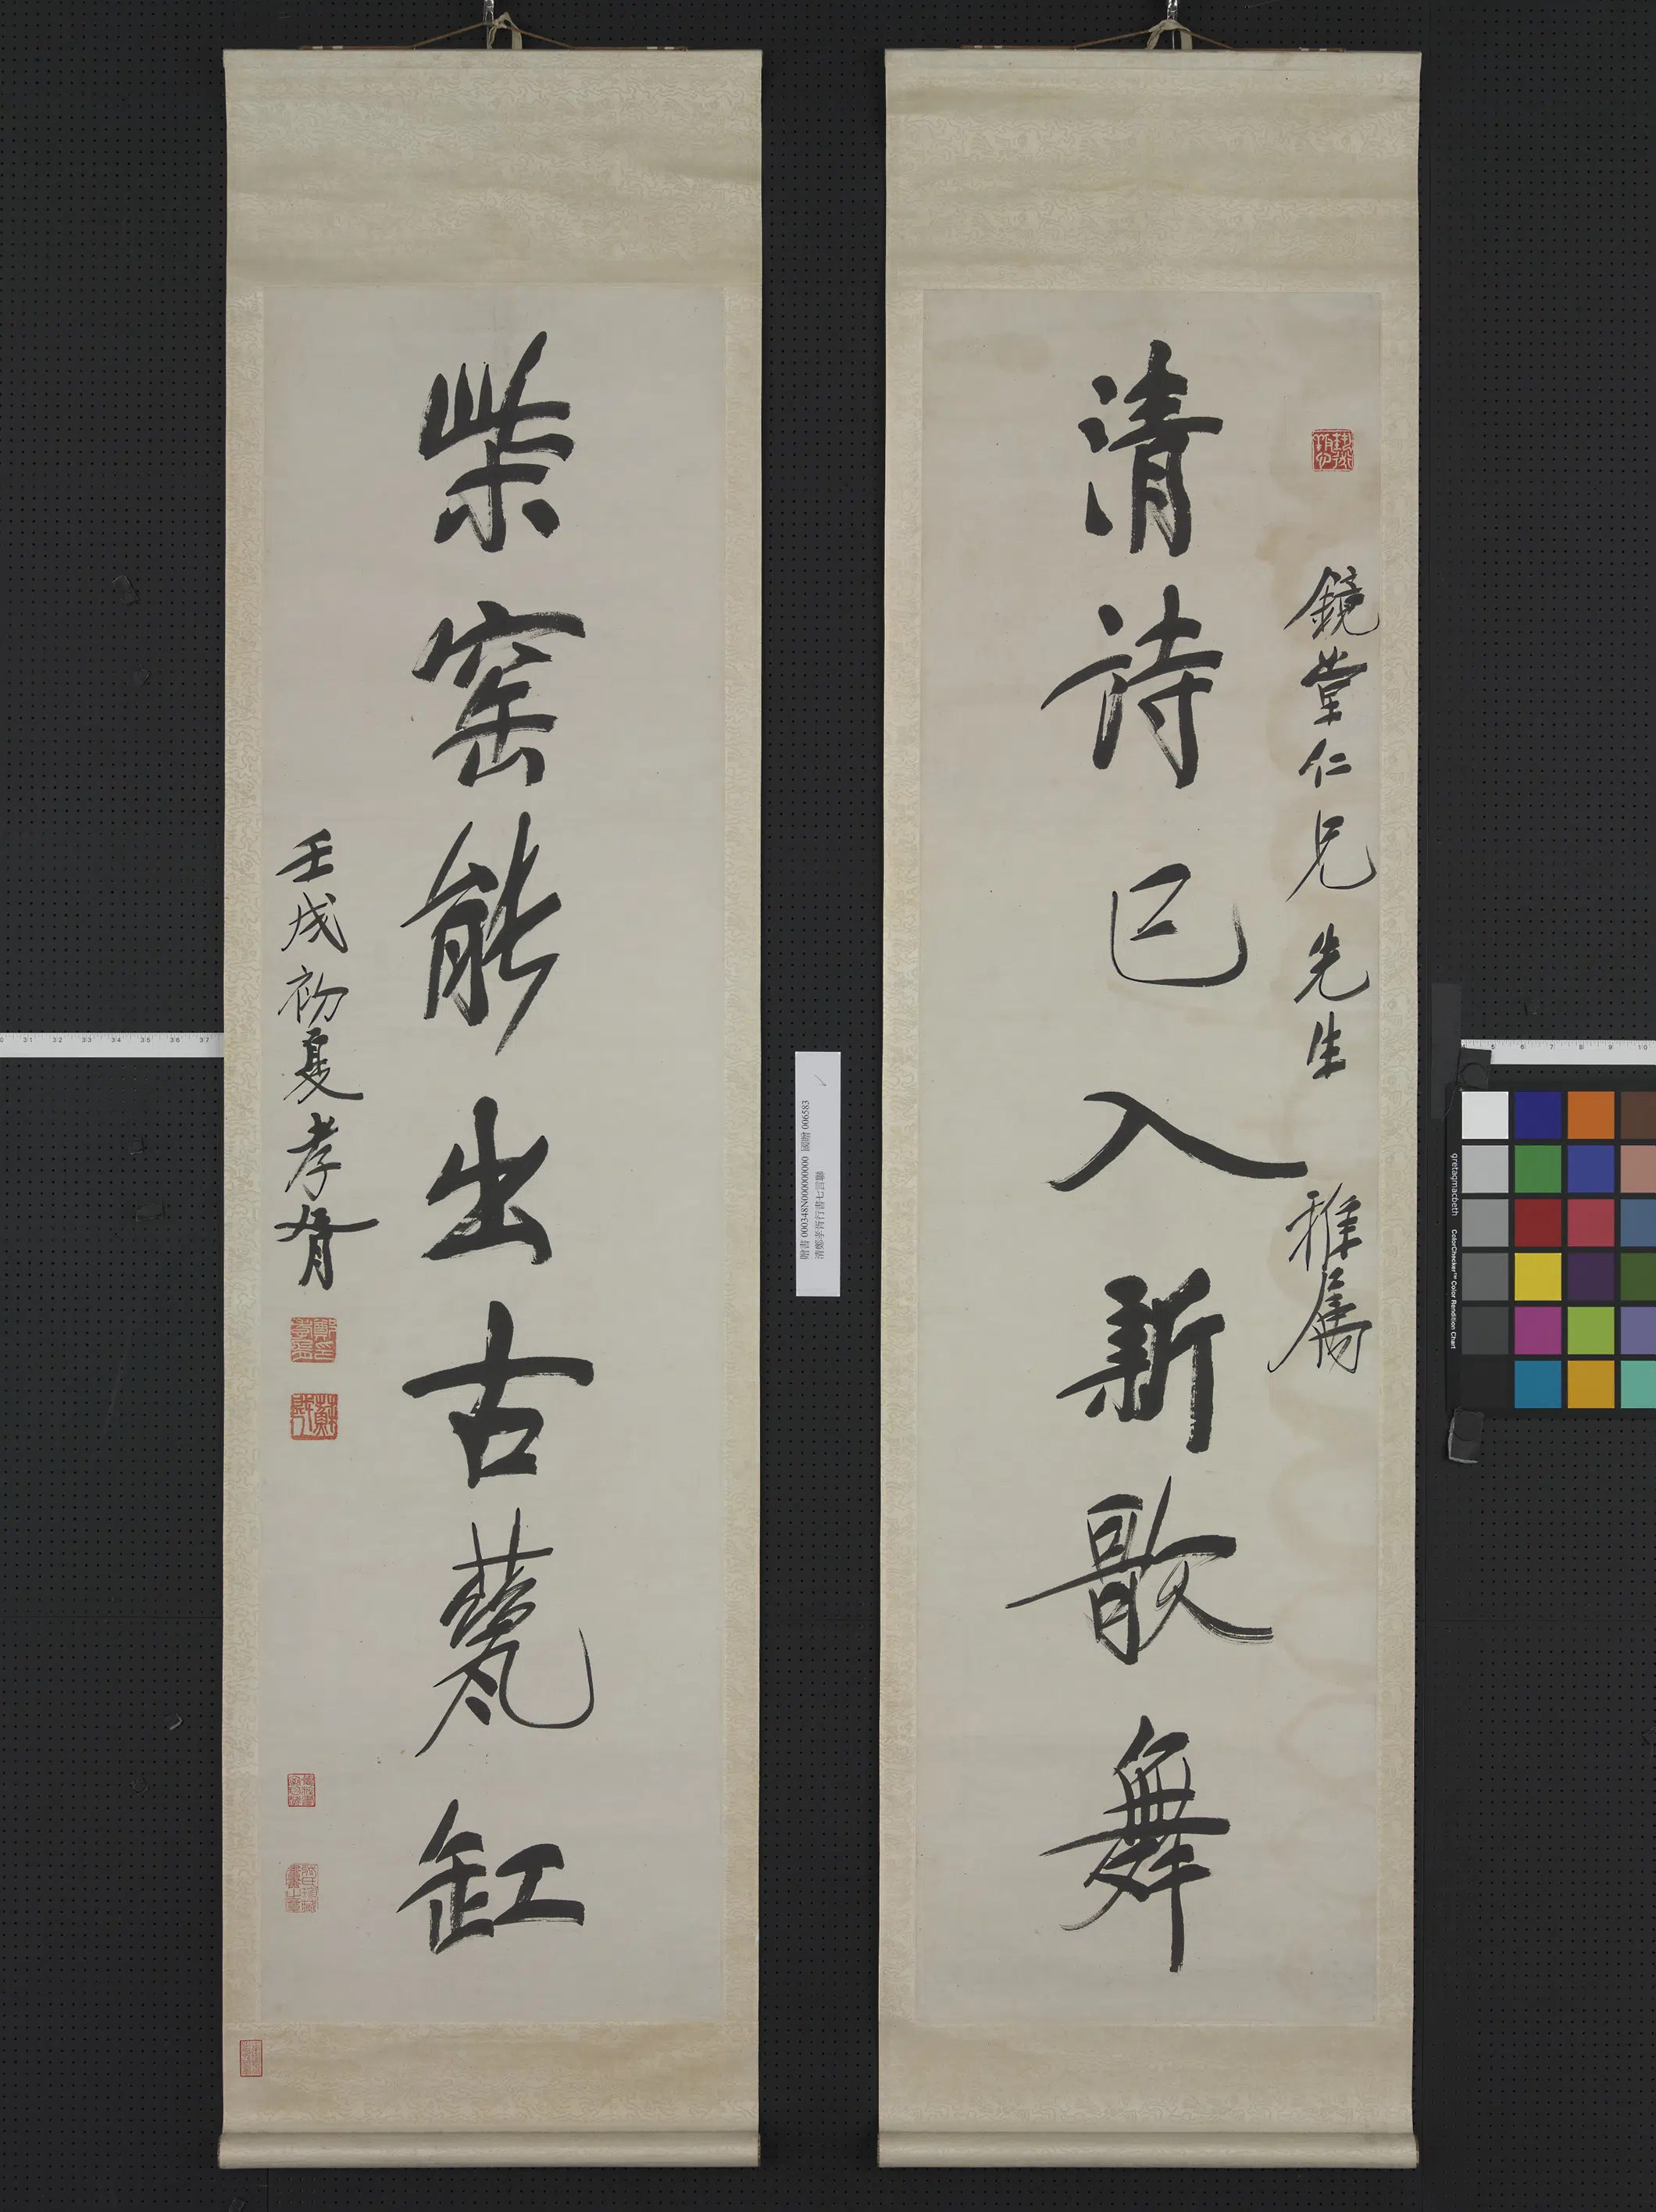 清詩已入新歌舞
鏡堂仁兄先生 雅屬
柴窰能出古缸
壬戌初夏孝胥
蘇戡
贈書 000348N000000000 圖贈 006583
清鄭孝胥行書七言聯
gretagmacbeth
ColorChecker™ Color Rendition Chart